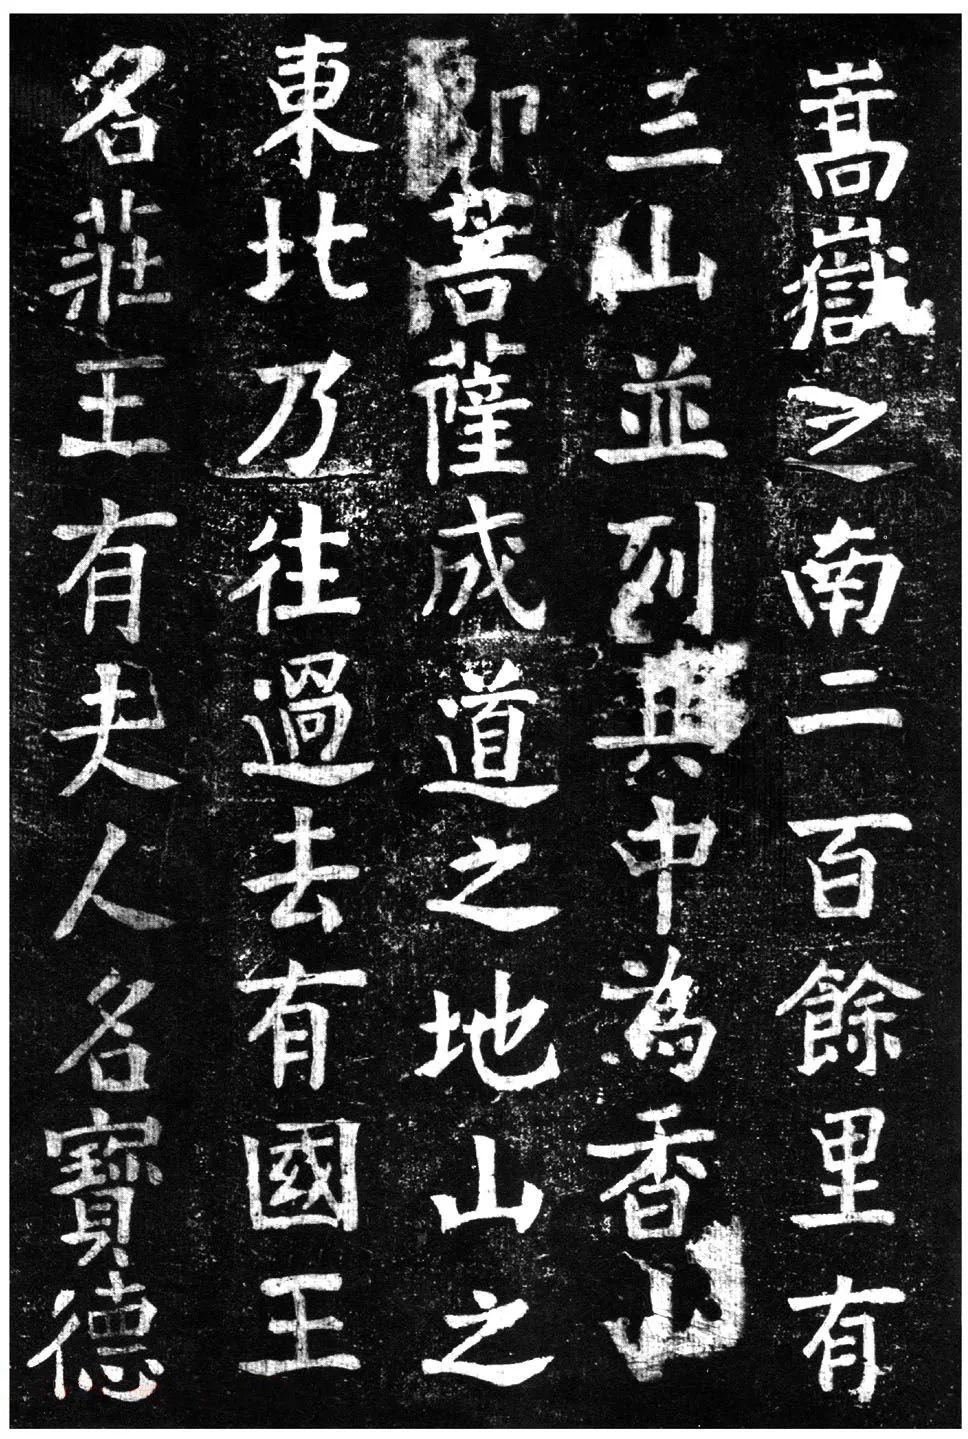 嵩嶽之南二百餘里有
三山並列其中為香山
即菩薩成道之地山之
東北乃往過去有國王
名莊王有夫人名寶德